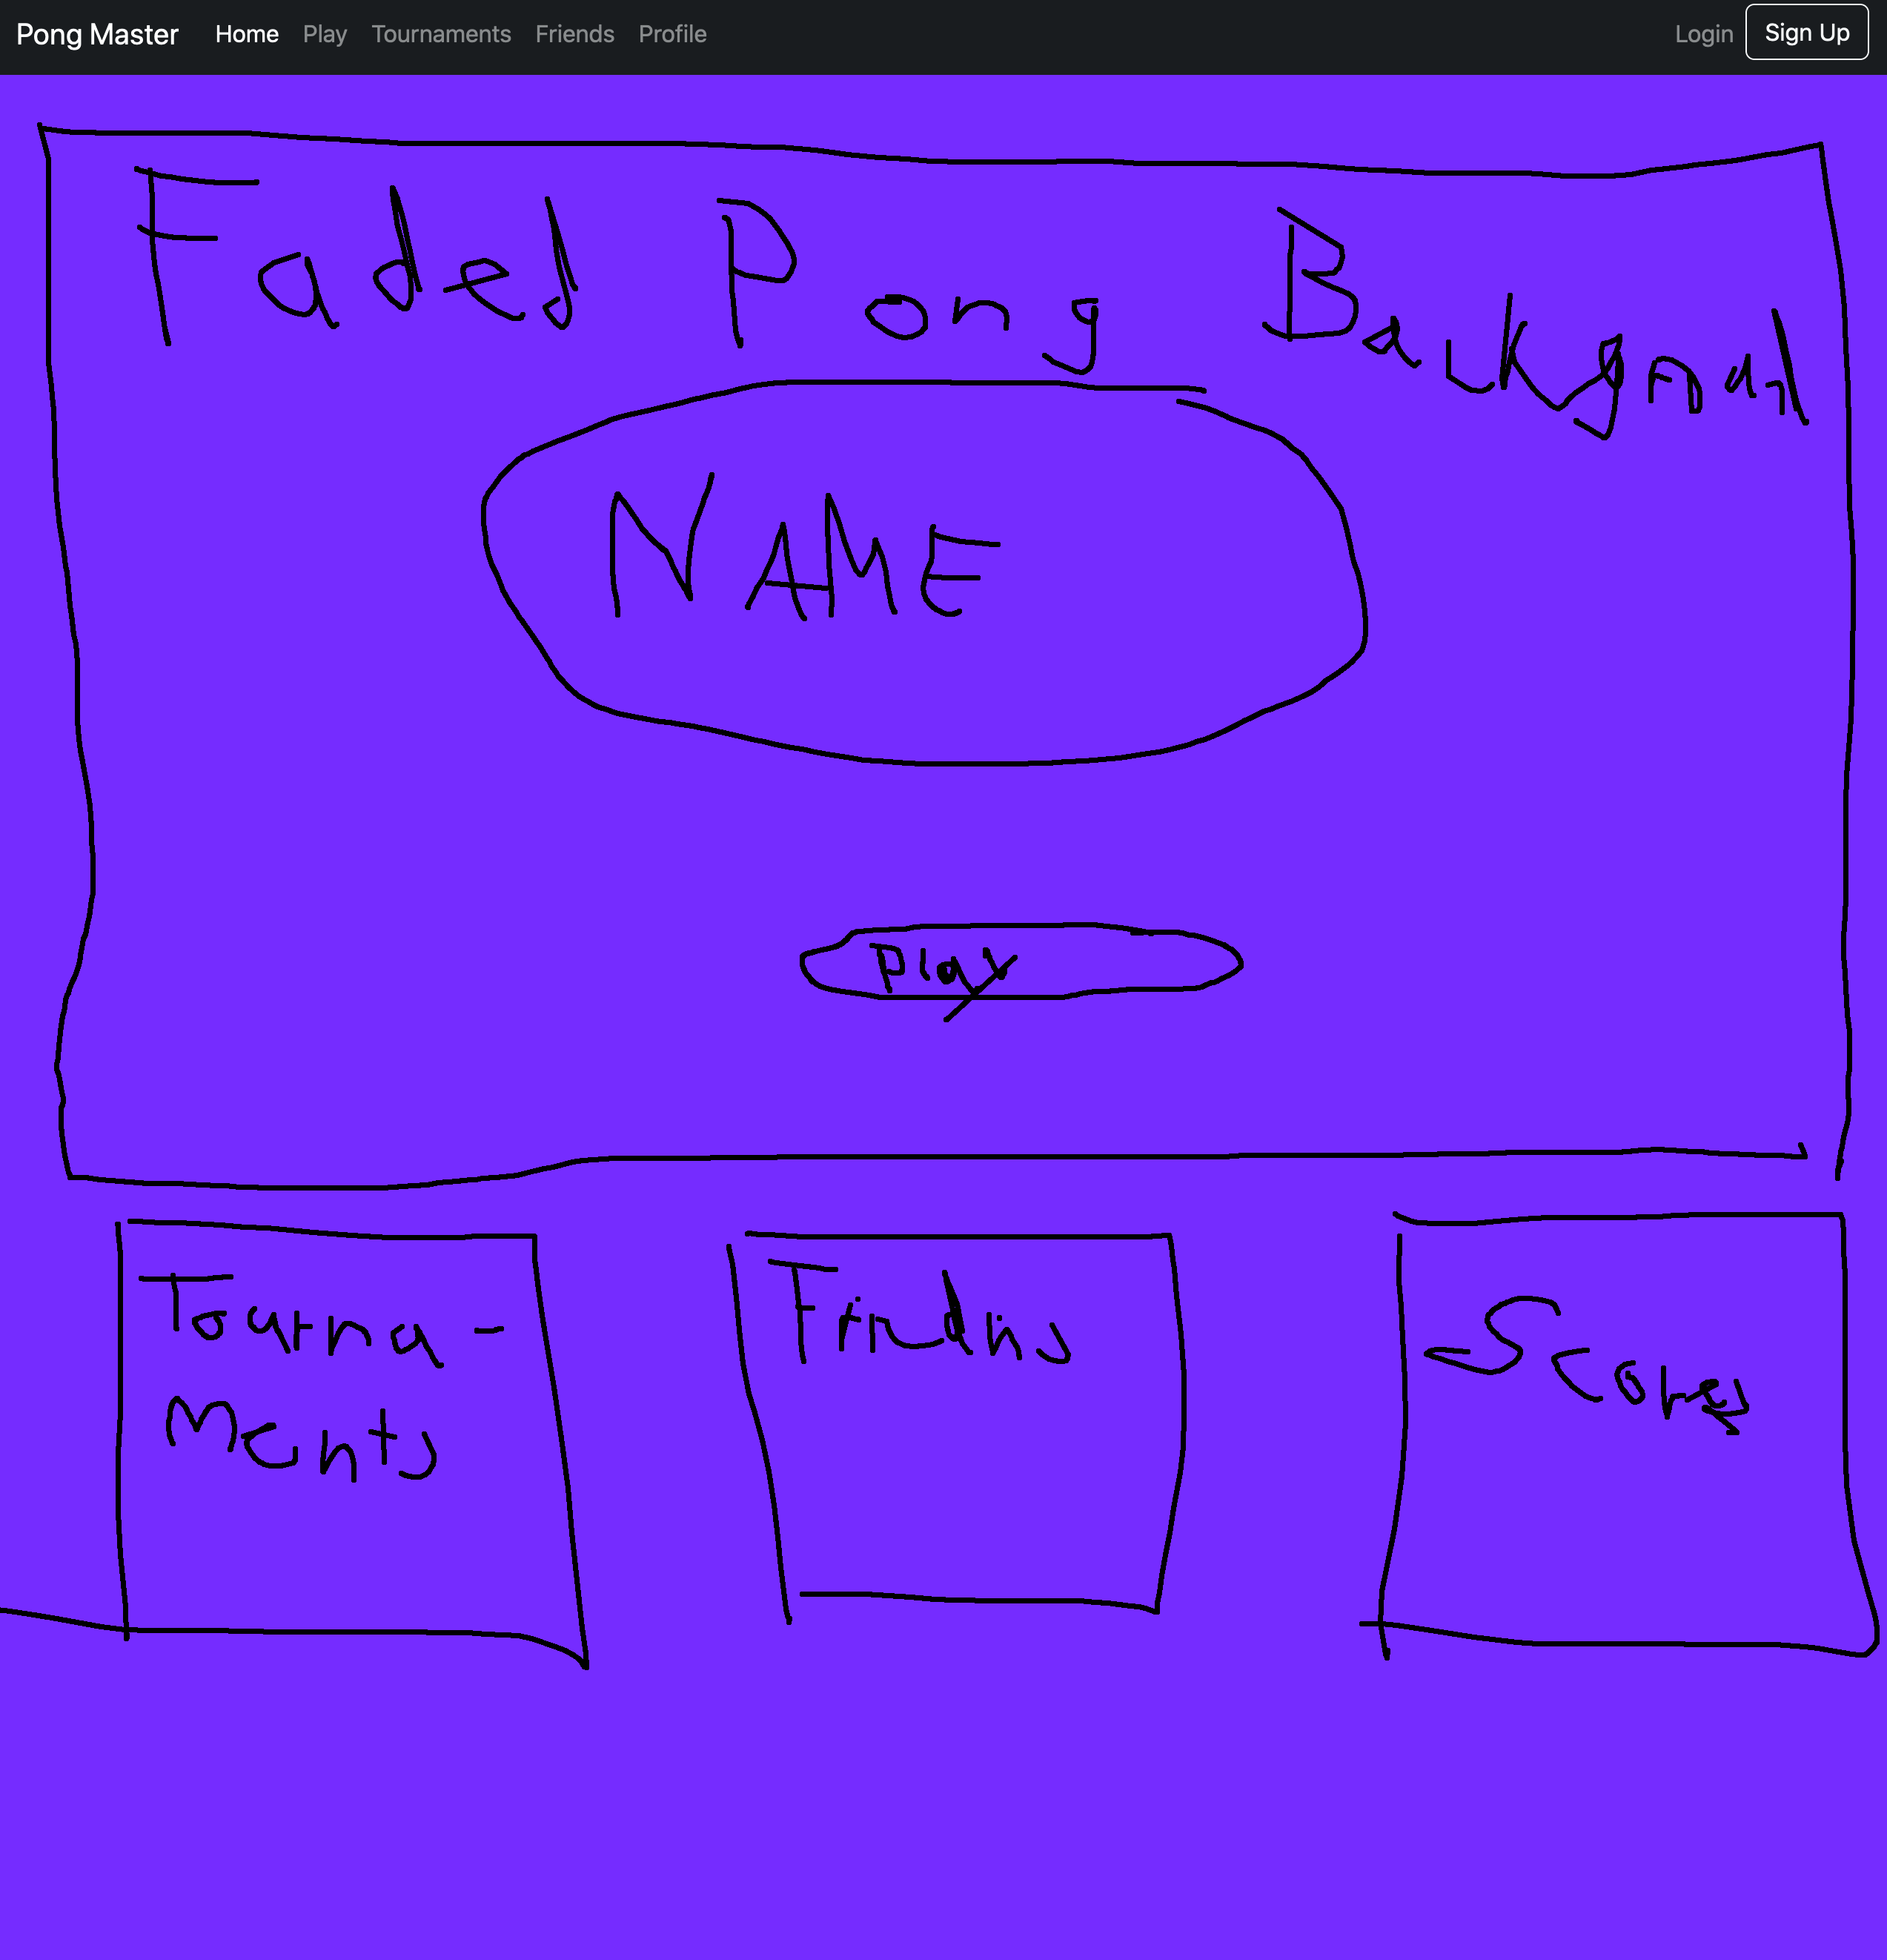 Pong Master Home Play Tournaments Friends Profile Login Sign Up
Faded Pong
NAME
Play
Tourna-
ments
Scores